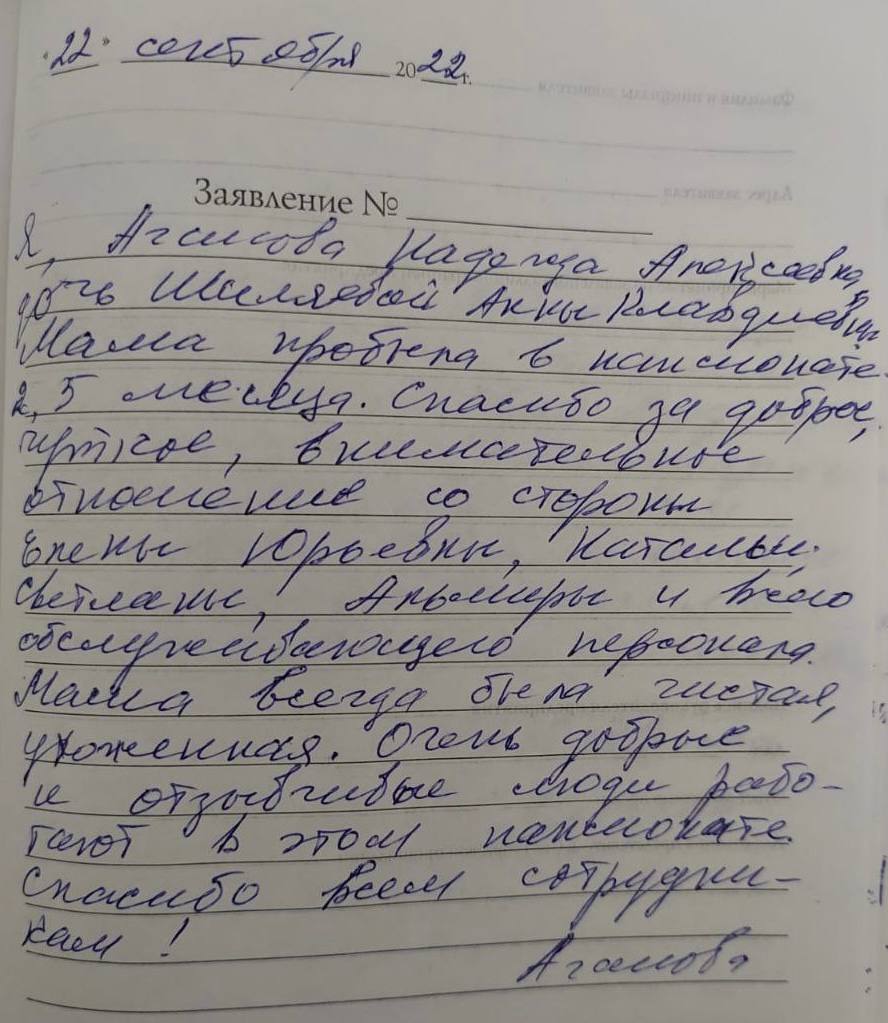 "22" сентября 2022 г.
Заявление №
Я, Агамова Надежда Алексеевна,
дочь Шиляевой Анны Клавдиевны
Мама пробыла в пансионате
2,5 месяца. Спасибо за доброе,
чуткое, внимательное
отношение со стороны
Елены Юрьевны, Натальи,
Светланы, Альмиры и всего
обслуживающего персонала.
Мама всегда была чистая,
ухоженная. Очень добрые
и отзывчивые люди рабо-
тают в этом пансионате.
Спасибо всем сотрудни-
кам!
Агамова